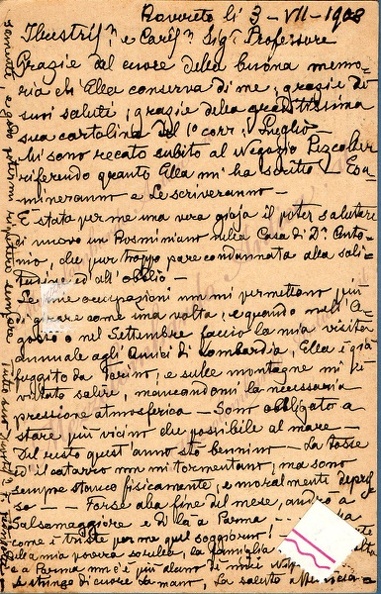 Rovereto li 3-VII-1908
Illustris.° e Caris.° Sig.r Professore
Grazie dal cuore della buona memo-
ria ch'Ella conserva di me; grazie de'
suoi saluti; grazie della graditissima
sua cartolina del 1° corr. Luglio -
Mi sono recato subito al Negozio
riferendo quanto Ella mi ha scritto - Esa-
mineranno e Le scriveranno -
È stata per me una vera gioja il poter salutare
di nuovo un Rosminiano nella Casa di D.n Anto-
nio, che pur troppo pare condannata alla soli-
tudine ed all'oblio -
Le mie occupazioni non mi permettono più
di girare come una volta; e quando nell'A-
gosto o nel Settembre faccio la mia visita
annuale agli Amici di Lombardia, Ella è già
fuggito da Torino, e sulle montagne mi è
vietato salire, mancandomi la necessaria
pressione atmosferica - Sono obbligato a
stare più vicino che possibile al mare -
Del resto quest'anno sto benino - La tosse
ed il catarro non mi tormentano; ma sono
sempre stanco fisicamente, e moralmente
so - Forse alla fine del mese, andrò a
Salsomaggiore e di là a Parma -
come è triste per me quel soggiorno!
alla mia povera sorella, la famiglia
e a Parma non c'è più alcun de' miei
Le stringo di cuore la mano, La saluto